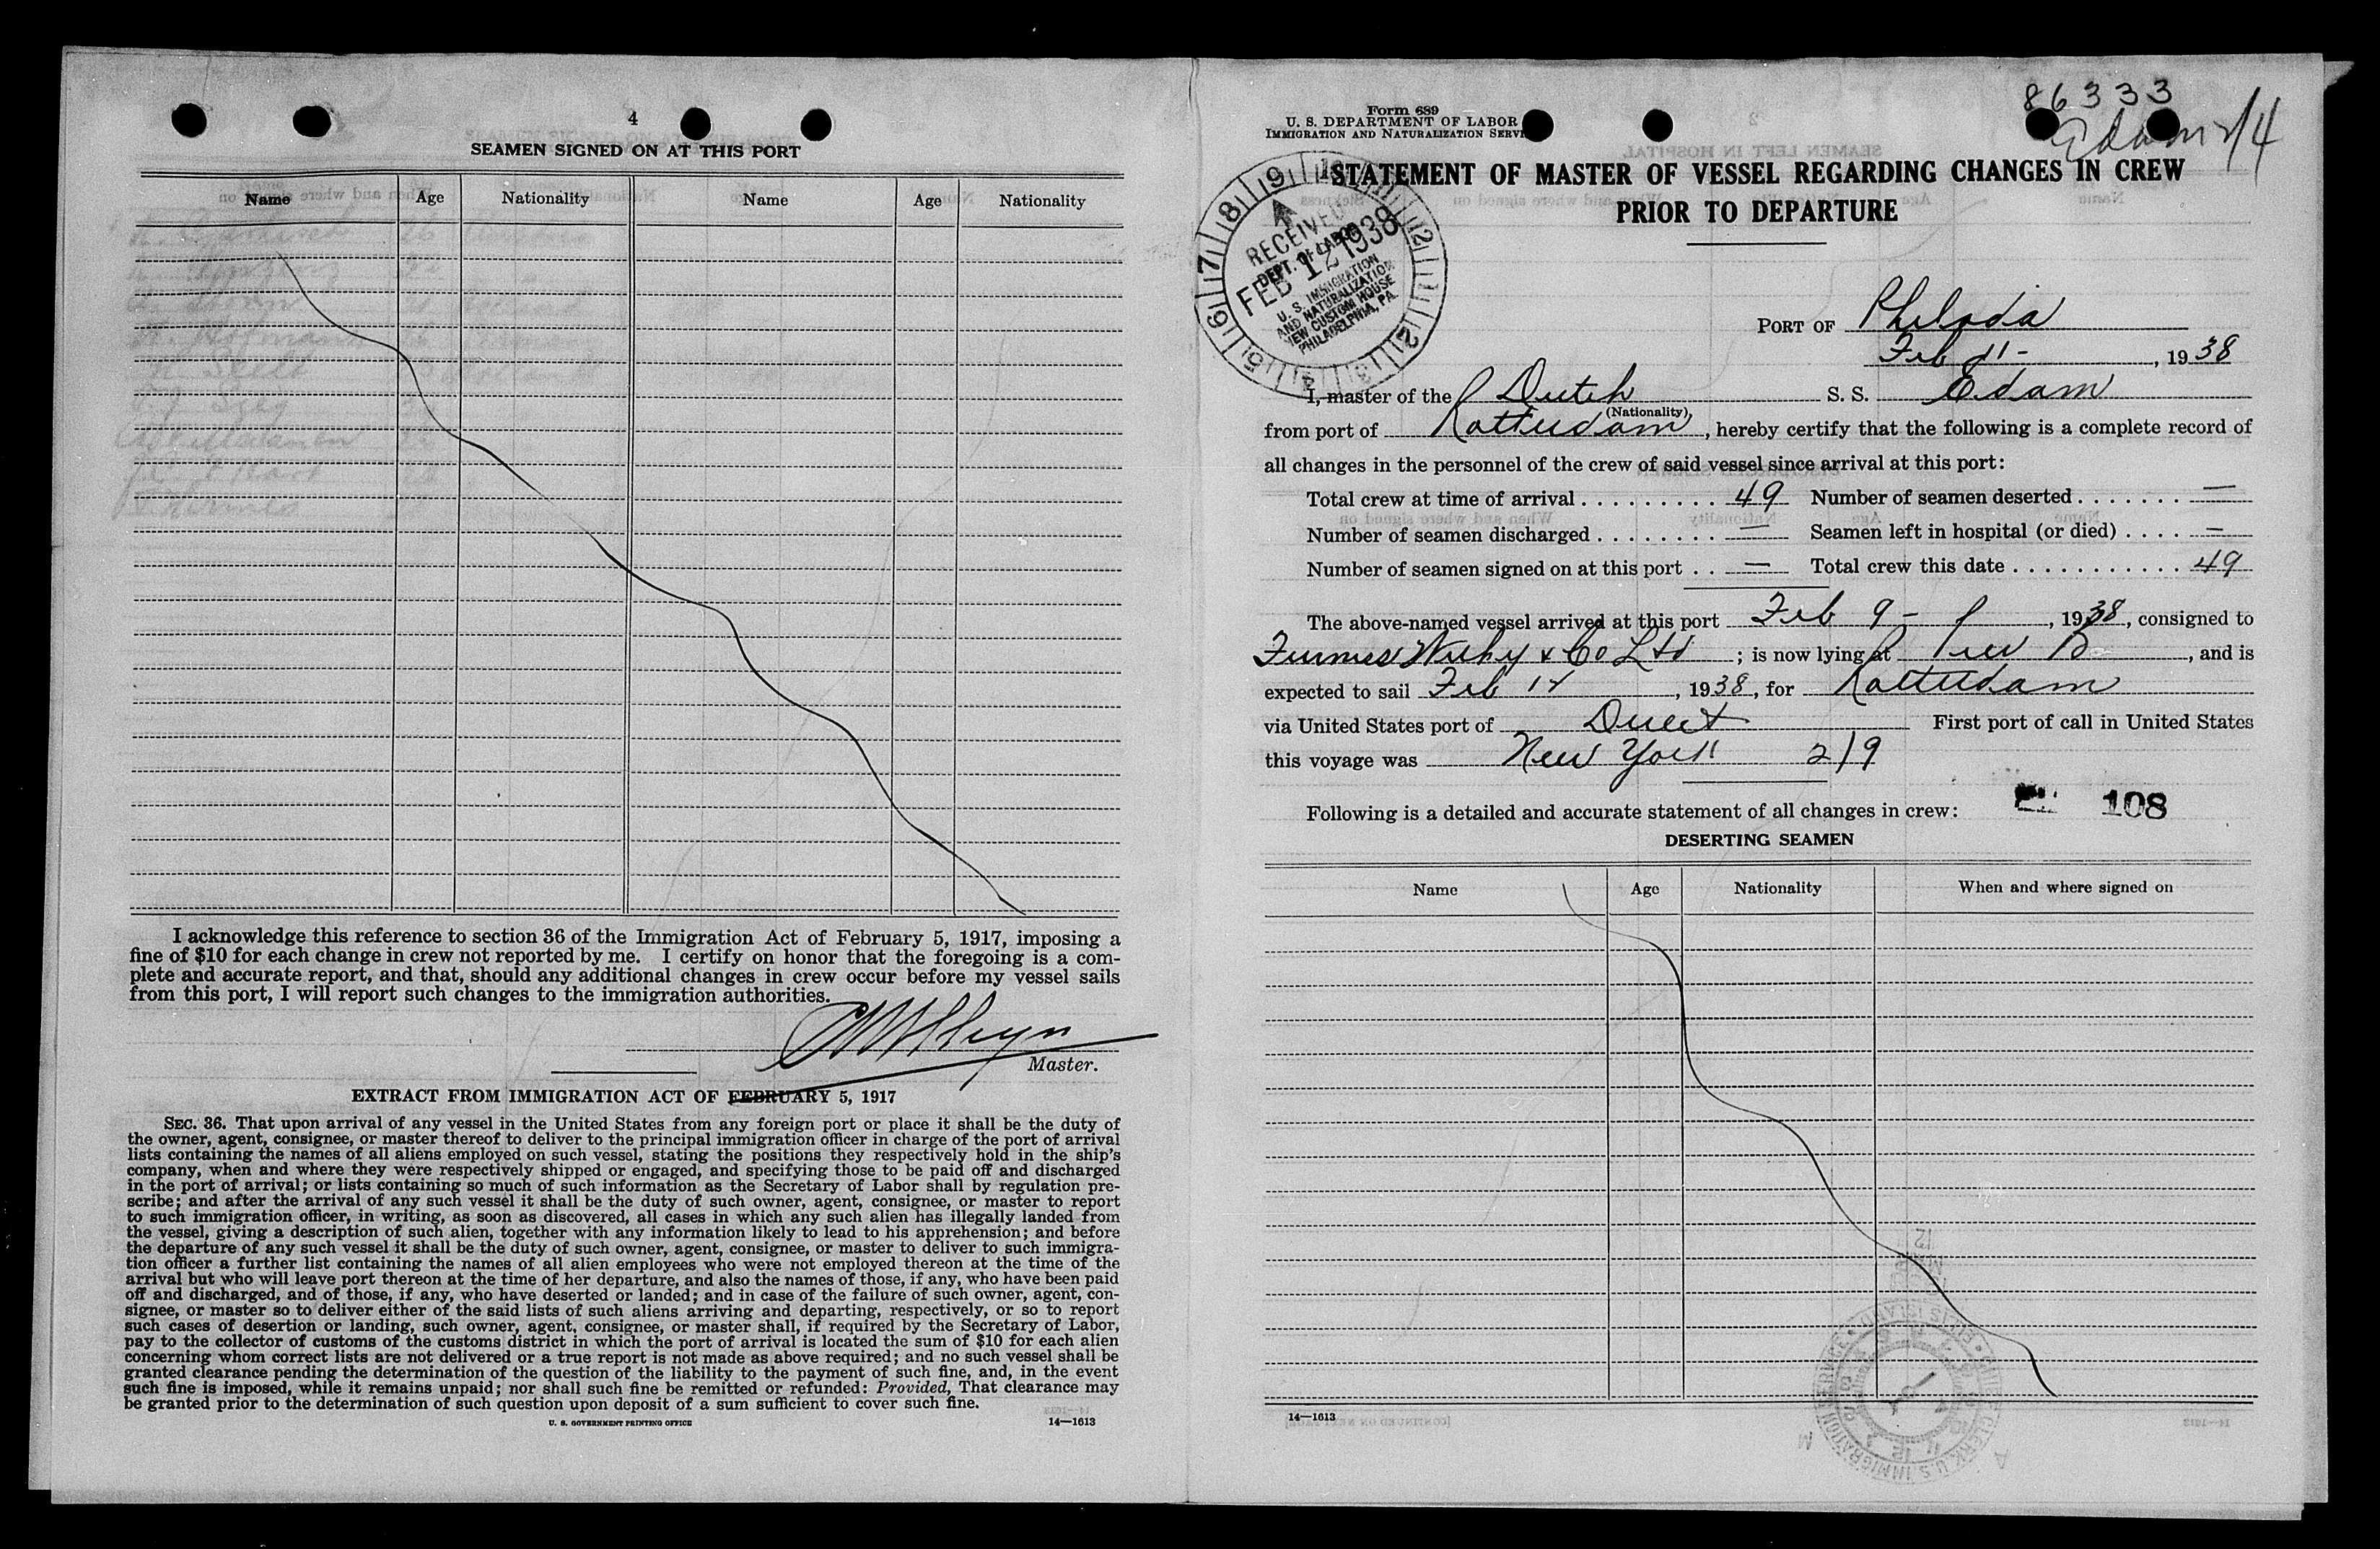 4
SEAMEN SIGNED ON AT THIS PORT
Name Age Nationality Name Age Nationality
I acknowledge this reference to section 36 of the Immigration Act of February 5, 1917, imposing a
fine of $10 for each change in crew not reported by me. I certify on honor that the foregoing is a com-
plete and accurate report, and that, should any additional changes in crew occur before my vessel sails
from this port, I will report such changes to the immigration authorities.
Master.
EXTRACT FROM IMMIGRATION ACT OF FEBRUARY 5, 1917
SEC. 36. That upon arrival of any vessel in the United States from any foreign port or place it shall be the duty of
the owner, agent, consignee, or master thereof to deliver to the principal immigration officer in charge of the port of arrival
lists containing the names of all aliens employed on such vessel, stating the positions they respectively hold in the ship's
company, when and where they were respectively shipped or engaged, and specifying those to be paid off and discharged
in the port of arrival; or lists containing so much of such information as the Secretary of Labor shall by regulation pre-
scribe; and after the arrival of any such vessel it shall be the duty of such owner, agent, consignee, or master to report
to such immigration officer, in writing, as soon as discovered, all cases in which any such alien has illegally landed from
the vessel, giving a description of such alien, together with any information likely to lead to his apprehension; and before
the departure of any such vessel it shall be the duty of such owner, agent, consignee, or master to deliver to such immigra-
tion officer a further list containing the names of all alien employees who were not employed thereon at the time of the
arrival but who will leave port thereon at the time of her departure, and also the names of those, if any, who have been paid
off and discharged, and of those, if any, who have deserted or landed; and in case of the failure of such owner, agent, con-
signee, or master so to deliver either of the said lists of such aliens arriving and departing, respectively, or so to report
such cases of desertion or landing, such owner, agent, consignee, or master shall, if required by the Secretary of Labor,
pay to the collector of customs of the customs district in which the port of arrival is located the sum of $10 for each alien
concerning whom correct lists are not delivered or a true report is not made as above required; and no such vessel shall be
granted clearance pending the determination of the question of the liability to the payment of such fine, and, in the event
such fine is imposed, while it remains unpaid; nor shall such fine be remitted or refunded: Provided, That clearance may
be granted prior to the determination of such question upon deposit of a sum sufficient to cover such fine.
U. S. GOVERNMENT PRINTING OFFICE 14—1613
86333
Edam 2/4
Form 689
U. S. DEPARTMENT OF LABOR
IMMIGRATION AND NATURALIZATION SERVI
STATEMENT OF MASTER OF VESSEL REGARDING CHANGES IN CREW
PRIOR TO DEPARTURE
RECEIVED
DEPT. OF LABOR
FEB 12 1938
U. S. IMMIGRATION
AND NATURALIZATION
NEW CUSTOM HOUSE
PHILADELPHIA, PA.
PORT OF Philada
Feb 11 - , 1938
I, master of the Dutch S. S. Edam
(Nationality)
from port of Rotterdam, hereby certify that the following is a complete record of
all changes in the personnel of the crew of said vessel since arrival at this port:
Total crew at time of arrival . . . . . . . . . 49 Number of seamen deserted . . . . . . . —
Number of seamen discharged . . . . . . . . — Seamen left in hospital (or died) . . . . —
Number of seamen signed on at this port . . — Total crew this date . . . . . . . . . . . 49
The above-named vessel arrived at this port Feb 9 - , 1938, consigned to
Furness Withy & Co Ltd ; is now lying at Pier B, and is
expected to sail Feb 12, 1938, for Rotterdam
via United States port of Direct First port of call in United States
this voyage was New York 2/9
Following is a detailed and accurate statement of all changes in crew: 108
DESERTING SEAMEN
Name Age Nationality When and where signed on
14—1613